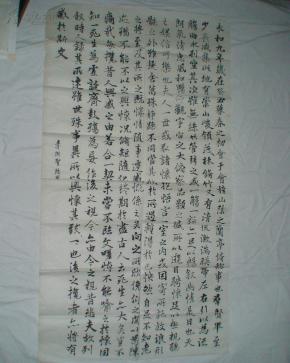 永和九年歲在癸丑暮春之初會于會稽山陰之蘭亭脩稧事也羣賢畢至
少長咸集此地有崇山峻領茂林脩竹又有清流激湍暎帶左右引以為流
觴曲水列坐其次雖無絲竹管弦之盛一觴一詠亦足以暢叙幽情是日也天
朗氣清惠風和暢仰觀宇宙之大俯察品類之盛所以遊目騁懷足以極視聽
之娛信可樂也夫人之相與俯仰一世或取諸懷抱悟言一室之內或因寄所託放浪形
骸之外雖趣舍萬殊靜躁不同當其欣於所遇暫得於己怏然自足不知老
之將至及其所之既惓情隨事遷感慨係之矣向之所欣俛仰之間以為陳
迹猶不能不以之興懷況脩短隨化終期於盡古人云死生亦大矣豈不
痛哉每攬昔人興感之由若合一契未嘗不臨文嗟悼不能喻之於懷固
知一死生為虛誕齊彭殤為妄作後之視今亦由今之視昔悲夫故列
叙時人錄其所述雖世殊事異所以興懷其致一也後之攬者亦將有
感於斯文